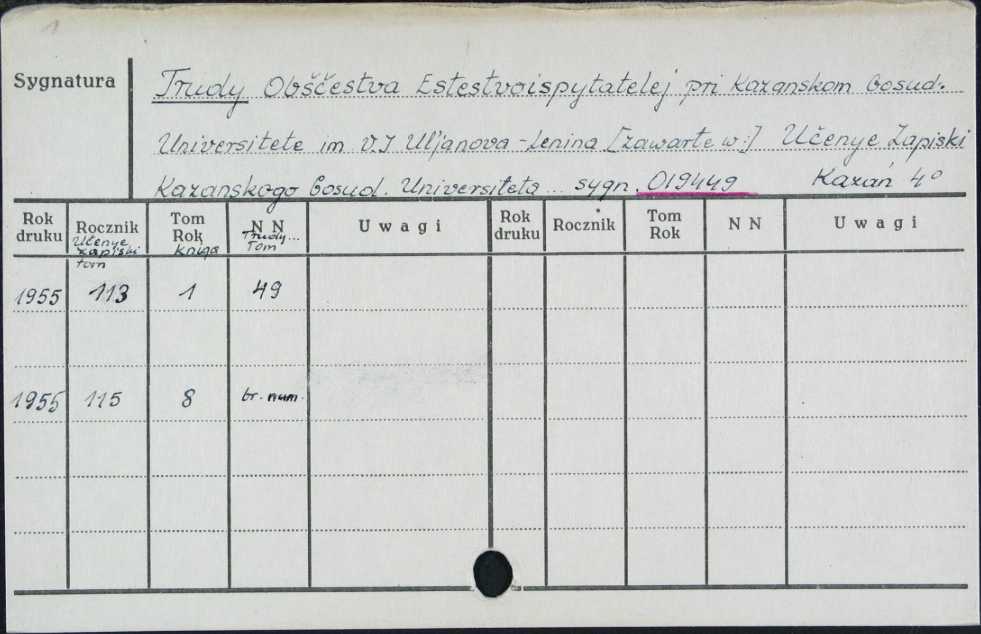 1
Sygnatura
Trudy Obščestva Estestvoispytatelej pri Kazanskom Gosud.
Universitete im V.I Uljanova-Lenina [zawarte w:] Učenye Zapiski
Kazanskogo Gosud. Universiteta ... sygn. 019449 Kazań 4°
Rok druku Rocznik Tom Rok N N Uwagi Rok druku Rocznik Tom Rok N N Uwagi
Učenye zapiski tom kniga Trudy... Tom
1955 113 1 49
1955 115 8 br. num.